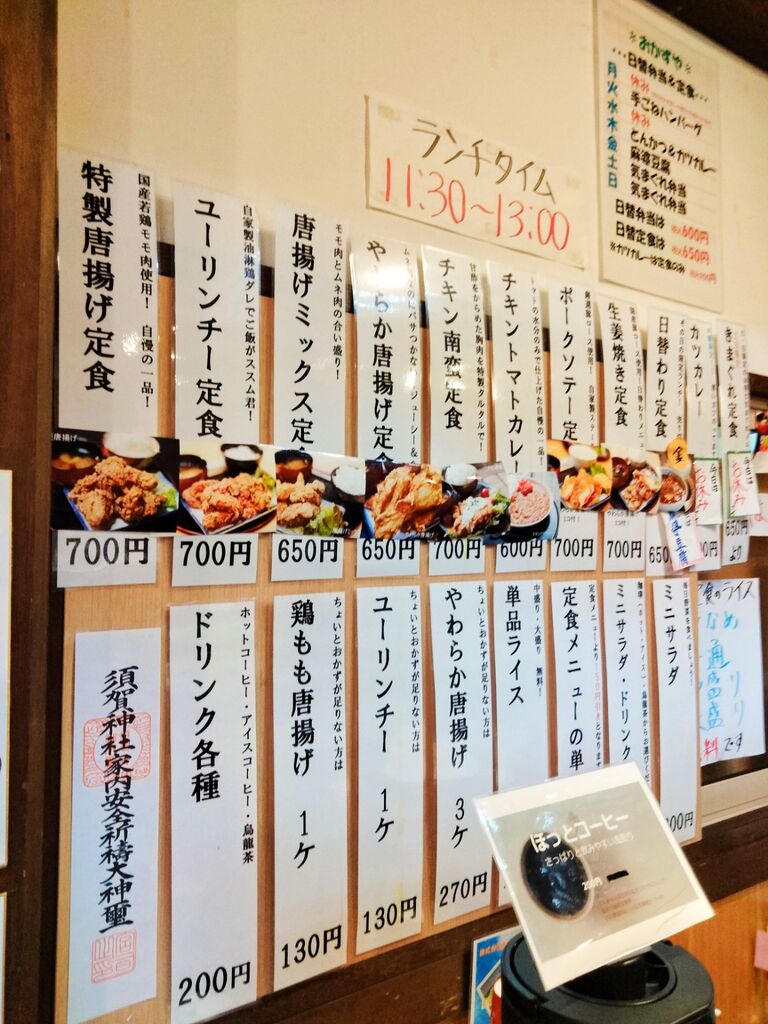 *おかずや*
・・・日替弁当&定食・・・
月 休み
火 手ごねハンバーグ
水 休み
木 とんかつ&カツカレー
金 麻婆豆腐
土 気まぐれ弁当
日 気まぐれ弁当
日替弁当は 税込600円
日替定食は 税込650円
※カツカレーは定食のみ
ランチタイム
11:30~13:00
特製唐揚げ定食
国産若鶏モモ肉使用! 自慢の一品!
700円
ユーリンチー定食
自家製油淋鶏ダレでご飯がススム君!
700円
唐揚げミックス定
モモ肉とムネ肉の合い盛り!
650円
やわらか唐揚げ定食
ムネなのにパサつかな
ジューシー&
650円
チキン南蛮定食
甘酢をからめた胸肉を特製タルタルで!
700円
チキントマトカレー
トマトの水分のみで仕上げた自慢の一品!
600円
ポークソテー定
700円
生姜焼き定食
700円
日替わり定食
650
カツカレー
お休み
700円
きまぐれ定食
お休み
650円
より
須賀神社家内安全祈祷大神璽
ドリンク各種
ホットコーヒー・アイスコーヒー・烏龍茶
200円
鶏もも唐揚げ 1ケ
ちょいとおかずが足りない方は
130円
ユーリンチー 1ケ
ちょいとおかずが足りない方は
130円
やわらか唐揚げ 3ケ
ちょいとおかずが足りない方は
270円
単品ライス
中盛り・大盛り 無料!
定食メニューの単
定食メニューより
ミニサラダ・ドリンク
ミニサラダ
毎日野菜を食べましょう!
00円
食のライス
なめ
通り
盛り
料です
ほっとコーヒー
さっぱりと飲みやすい
200円